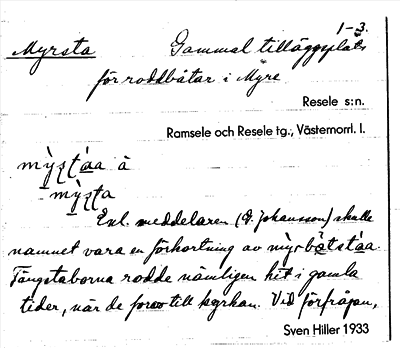 1-3.
Myrsta Gammal tilläggsplats
för roddbåtar i Myre
Resele s:n.
Ramsele och Resele tg., Västernorrl. l.
mỳʂʈa̲a å
mỳʂʈa
Enl. meddelaren (O. Johansson) skulle
namnet vara en förkortning av mỳrbåtsta̲a.
Tängstaborna rodde nämligen hit i gamla
tider, när de foro till kyrkan. Vid förfrågan,
Sven Hiller 1933